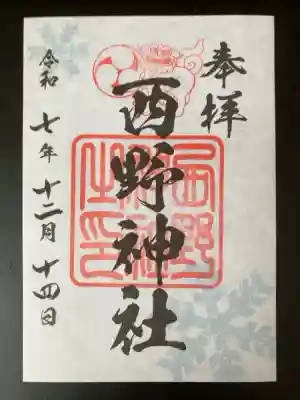 奉拝
西野神社
西野神社之印
令和七年十二月十四日